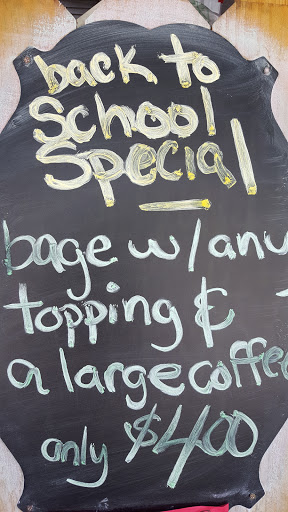 back to
School
Special
bage w/ any
topping &
a large coffee
only $4.00